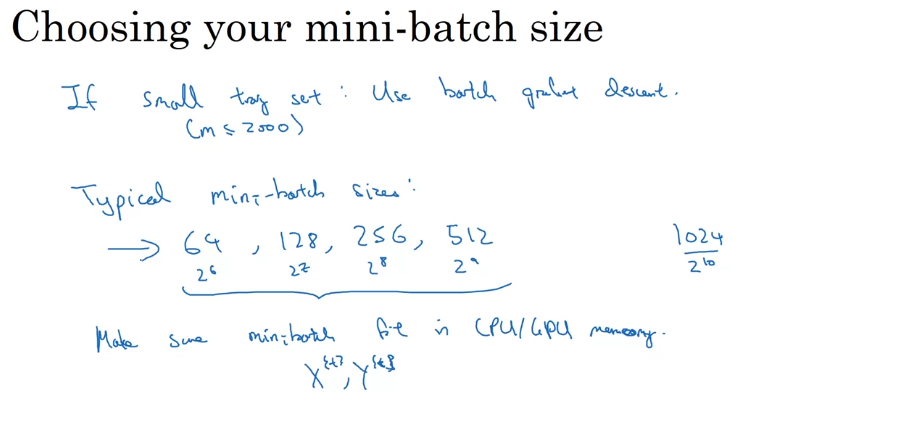 Choosing your mini-batch size
If small trag set : Use batch gradient descent.
(m ≤ 2000)
Typical mini-batch sizes:
→ 64, 128, 256, 512 1024
2^6 2^7 2^8 2^9 2^10
Make sure mini-batch fit in CPU/GPU memory.
X^{t}, Y^{t}